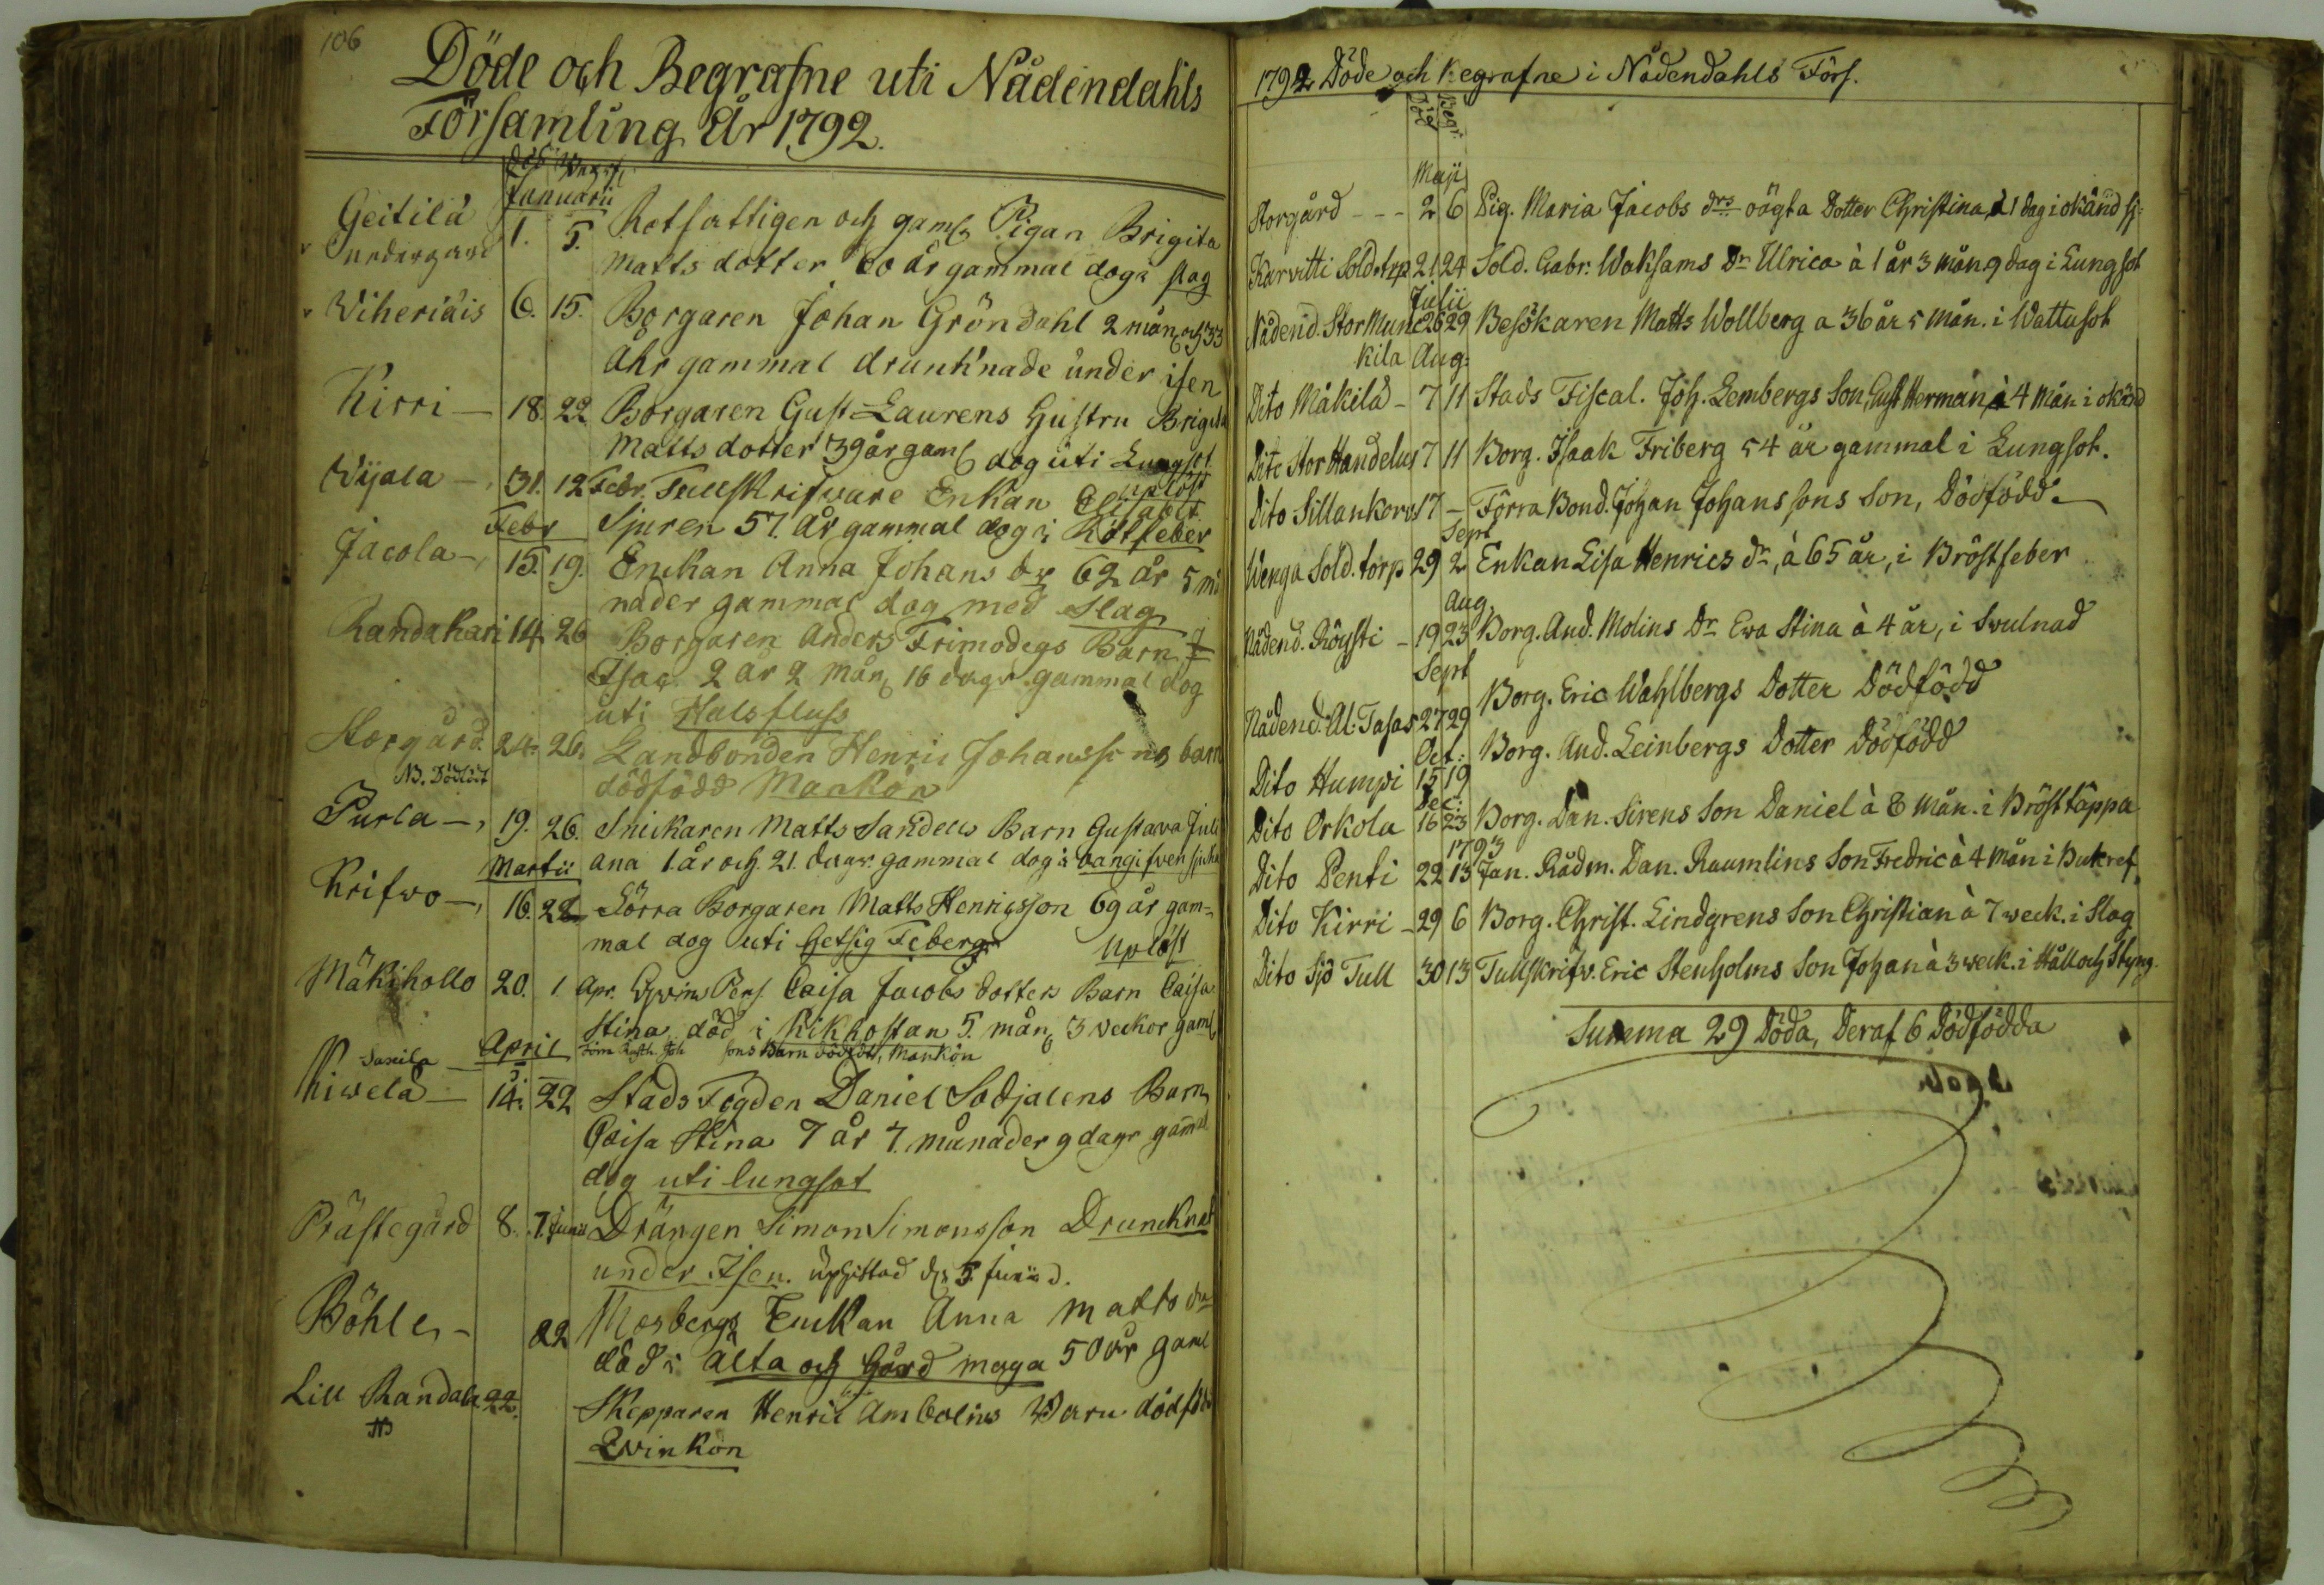 106
Döde och Begrafne uti Nådendahls
Församling År 1792.
Död Begrf
Januarii
Geitilä nedergård 1. 5. Rotfattigen och gaml Pigan Brigita
Matts dotter 60 år gammal dog i slag
Viheriäis 6. 15. Borgaren Johan Gröndahl 2 mån och 33
ahr gammal drunknade under isen
Kirri 18. 22 Borgaren Gust Laurens Hustru Brigita
Matts dotter 39 år gaml dog uti Lungsot
uplöst
31. 12 Febr. Tullskrifvare Enkan Elisabet
Febr Sjuren 57. år gammal dog i Rötfeber
Jacola 15. 19. Enckan Anna Johans dr 62 år 5 må
nader gammal dog med Slag
Randakari 14. 26 Borgaren Anders Frimodegs Barn
Isac 2 år 2 mån 16 dagr gammal dog
uti Halsfluss
Storgård 24. 26. Landbonden Henric Johanssons barn
NB. Dödfödt dödfödd Mankön
Purla 19. 26. Snickaren Matts Sandells Barn Gustava Juli
Martii ana 1. år och 21. dagar gammal dog i oangifven sjuka
Krifwo 16. 22 Förra Borgaren Matts Henricsson 69 år gam=
mal dog uti Hetsig Feber
Uplöst
Mäkihollo 20. 1 Apr. Qwins Pers. Caisa Jacobs dotters Barn Caisa
Stina död i Kikhostan 5. mån 3 veckor gaml
April sons Barn dödfödt, Mankön
Kiwelä 14. 22 Stads Fogden Daniel Sodjalens Barn
Caisa Stina 7 år 7. månader 9 dagr gaml
dog uti lungsot
Prästegård 8. 7. Junii Drängen Simon Simonsson Druncknat
under Isen. uphittad d. 5. Junii
Böhle 22 Mosbergs Enckan Anna Matts dr
död i ålta och hård maga 50 år gaml
Lill Randala 22. Skepparen Henric Ambolins Barn dödfödt
NB
Qwinkön
1792 Döde och begrafne i Nådendahls Förs.
Död Begr.
Maji
Storgård - - - 2 6 Pig. Maria Jacobs drs oägta Dotter Christina, à 1 dag i okänd sj:
Karvitti Sold. trp 21 24 Sold. Gabr. Waksams Dr Ulrica à 1 år 3 mån 9 dag i Lungsot
Julii
Nådend. Stor Mun 26 29 Besökaren Matts Wollberg a 36 år 5 mån. i Wattusot
kila Aug:
Dito Mäkilä - 7 11 Stads Fiscal. Joh. Lembergs Son Gust Herman, à 4 mån i okänd
Dito Stor Handelus 7 11 Borg. Isaak Friberg 54 år gammal i Lungsot.
Dito Sillankorva 17 - Förra Bond. Johan Johanssons Son, Dödfödd
Sept
Wenga Sold. torp 29 2 Enkan Lisa Henrics dr, à 65 år, i Bröstfeber
Aug
Nådend. Röysti - 19 23 Borg. And. Molins Dr Ewa Stina à 4 år, i Swulnad
Sept
Nådend. Al. Tasas 27 29 Borg. Eric Wahlbergs Dotter Dödfödd
Oct:
Dito Humpi 15 19 Borg. And. Leinbergs Dotter Dödfödd
Dec:
Dito Orkola 16 23 Borg. Dan. Sirens Son Daniel à 8 mån. i Brösttäppa
1793
Dito Penti 22 13 Jan. Rådm. Dan. Raumlins Son Fredric à 4 mån i Bukref
Dito Kirri - 29 6 Borg. Christ. Lindgrens Son Christian à 7 weck. i Slag
Dito Sjö Tull 30 13 Tullskrifv. Eric Stenholms Son Johan à 3 weck. i Håll och Styng.
Summa 29 Döda, Deraf 6 Dödfödda